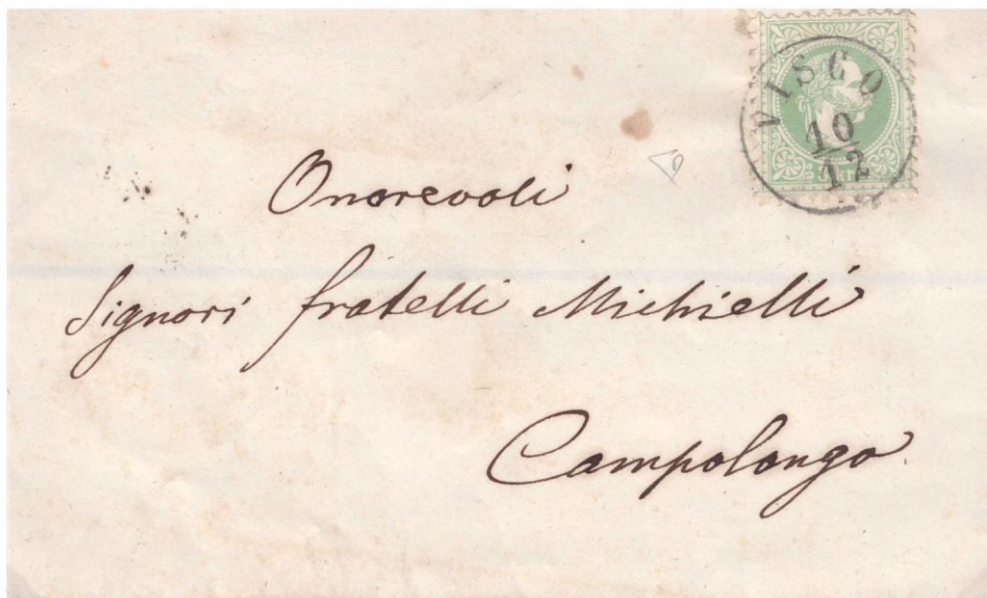 VISCO
10
12
Onorevoli
Signori fratelli Michielli
Campolongo